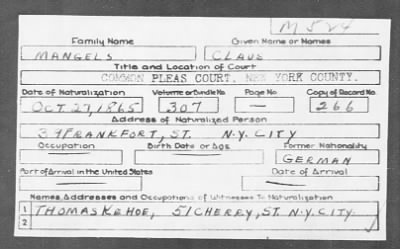 M524
Family Name Given Name or Names
MANGELS CLAUS
Title and Location of Court
COMMON PLEAS COURT, NEW YORK COUNTY.
Date of Naturalization Volume or Bundle No. Page No Copy of Record No.
OCT 27, 1865 307 — 266
Address of Naturalized Person
39 FRANKFORT, ST. N.Y. CITY
Occupation Birth Date or Age Former Nationality
— — GERMAN
Port of Arrival in the United States Date of Arrival
— —
Names, Addresses and Occupations of Witnesses To Naturalization
1 THOMAS KEHOE, 51 CHERRY, ST. N.Y. CITY.
2